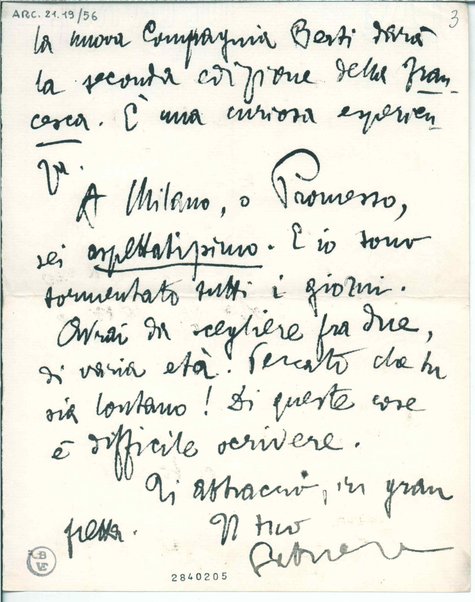 ARC. 21.19/56
3
la nuova Compagnia Berti darà
la seconda edizione della Fran-
cesca. È una curiosa esperien-
za.
A Milano, o Promesso,
sei aspettatissimo. E io sono
tormentato tutti i giorni.
Avrai da scegliere fra due,
di varia età. Peccato che tu
sia lontano! Di queste cose
è difficile scrivere.
Ti abbraccio, in gran
fretta. Il tuo
B
VE
2840205